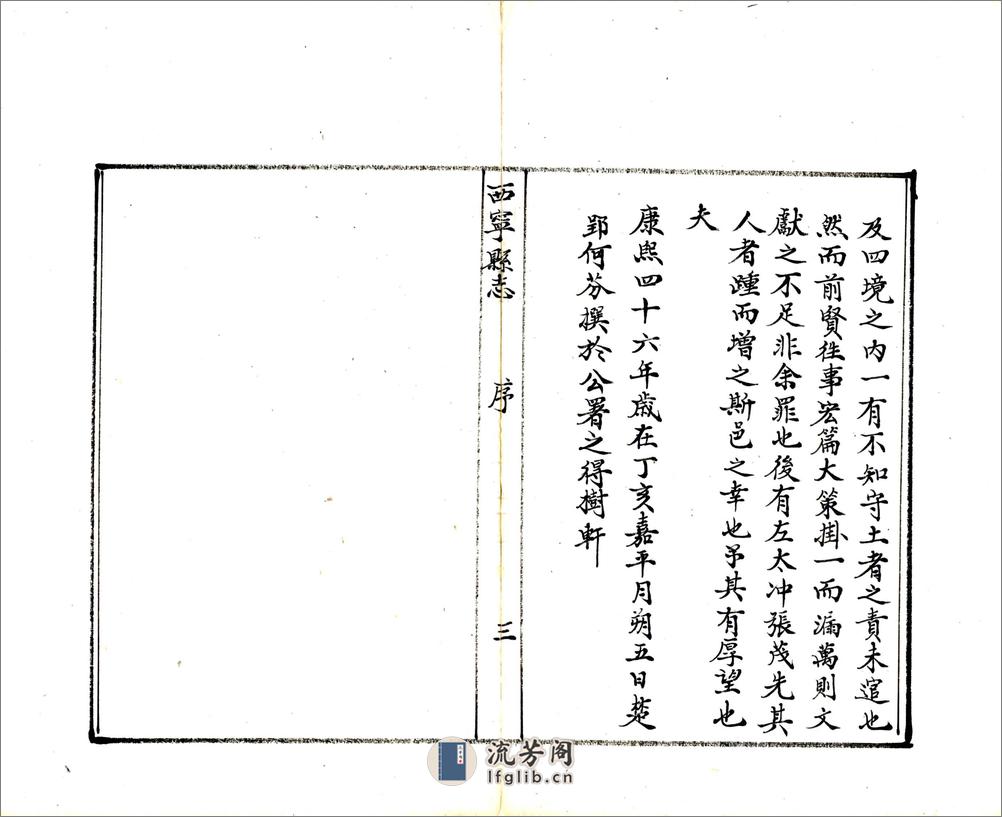 及四境之内一有不知守土者之責未逭也
然而前賢徃事宏篇大策掛一而漏萬則文
獻之不足非余罪也後有左太冲張茂先其
人者踵而增之斯邑之幸也予其有厚望也
夫
康熙四十六年歲在丁亥嘉平月朔五日楚
郢何芬撰於公署之得樹軒
西寧縣志
序
三
流芳阁
lfglib.cn